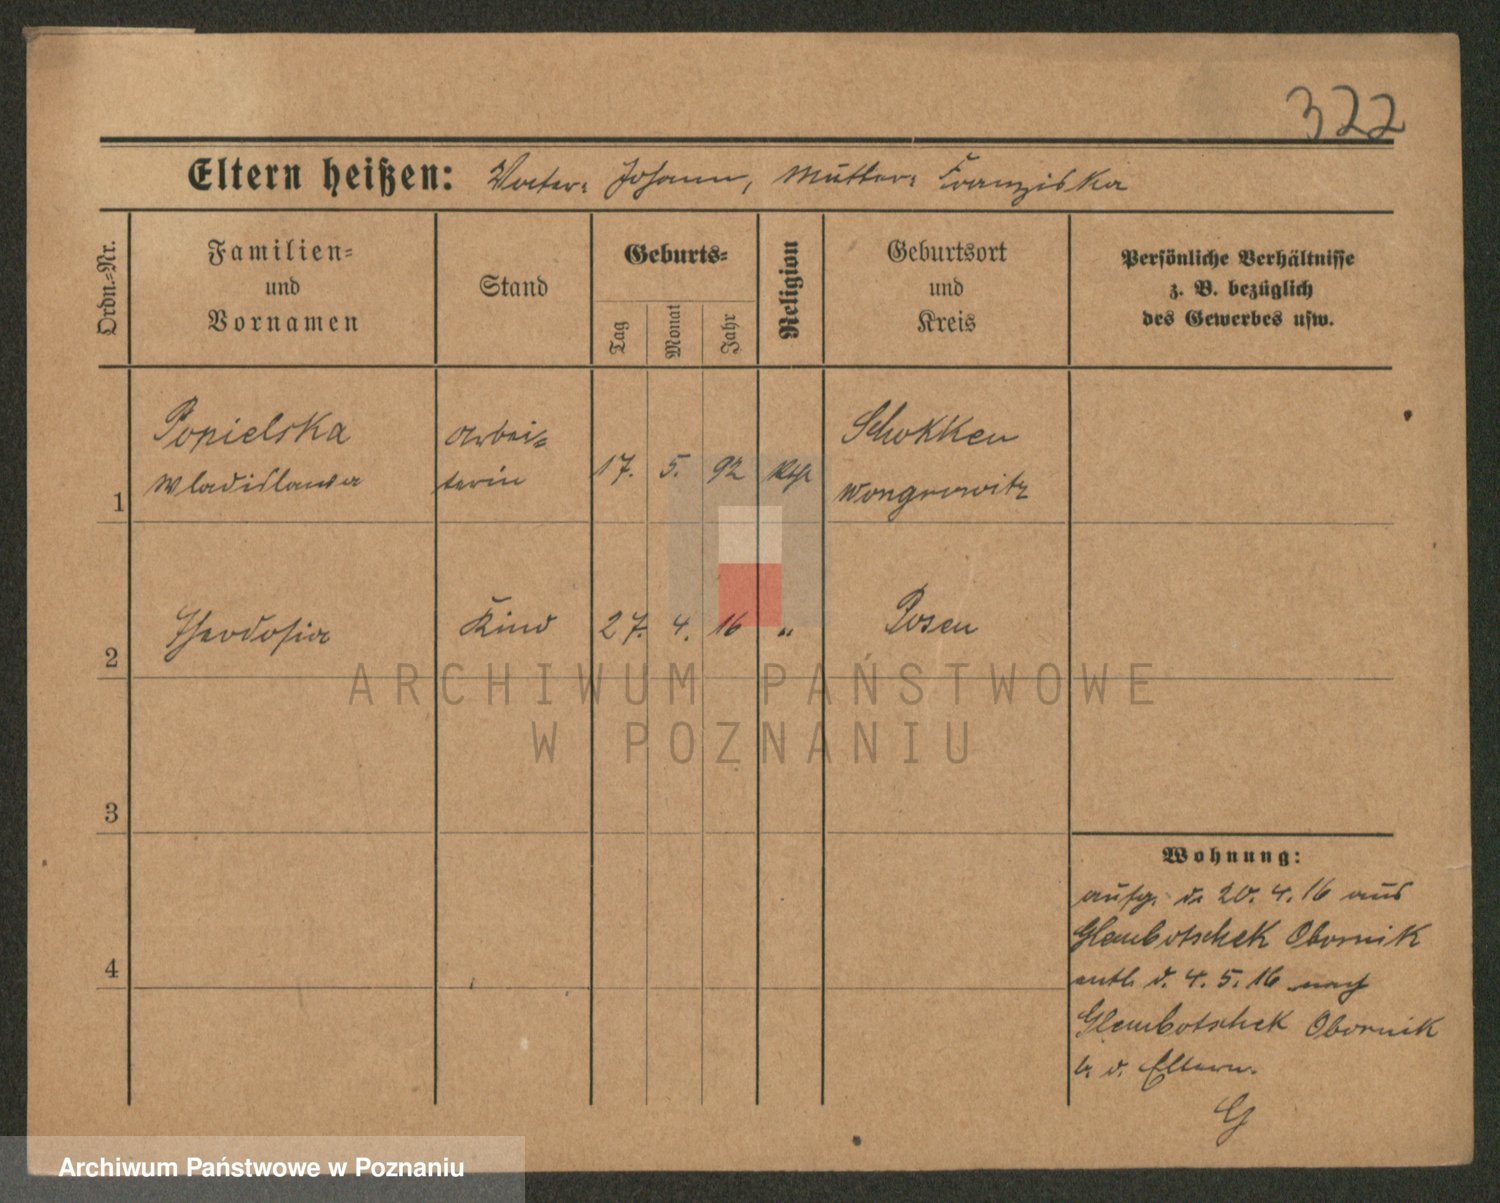 322
Eltern heißen: Vater: Johann, Mutter: Franziska
Ordn.-Nr.
Familien-
und
Vornamen
Stand
Geburts-
Tag
Monat
Jahr
Religion
Geburtsort
und
Kreis
Persönliche Verhältnisse
z. B. bezüglich
des Gewerbes usw.
Popielska
Wladislawa
Arbei-
terin
17. 5. 92 kth
Schokken
Wongrowitz
1
Theodosia
Kind
27. 4. 16 "
Posen
2
ARCHIWUM PAŃSTWOWE
W POZNANIU
3
4
Wohnung:
aufg. d. 20. 4. 16 aus
Glembotschek Obornik
entl. d. 4. 5. 16 nach
Glembotschek Obornik
b. d. Eltern.
G
Archiwum Państwowe w Poznaniu